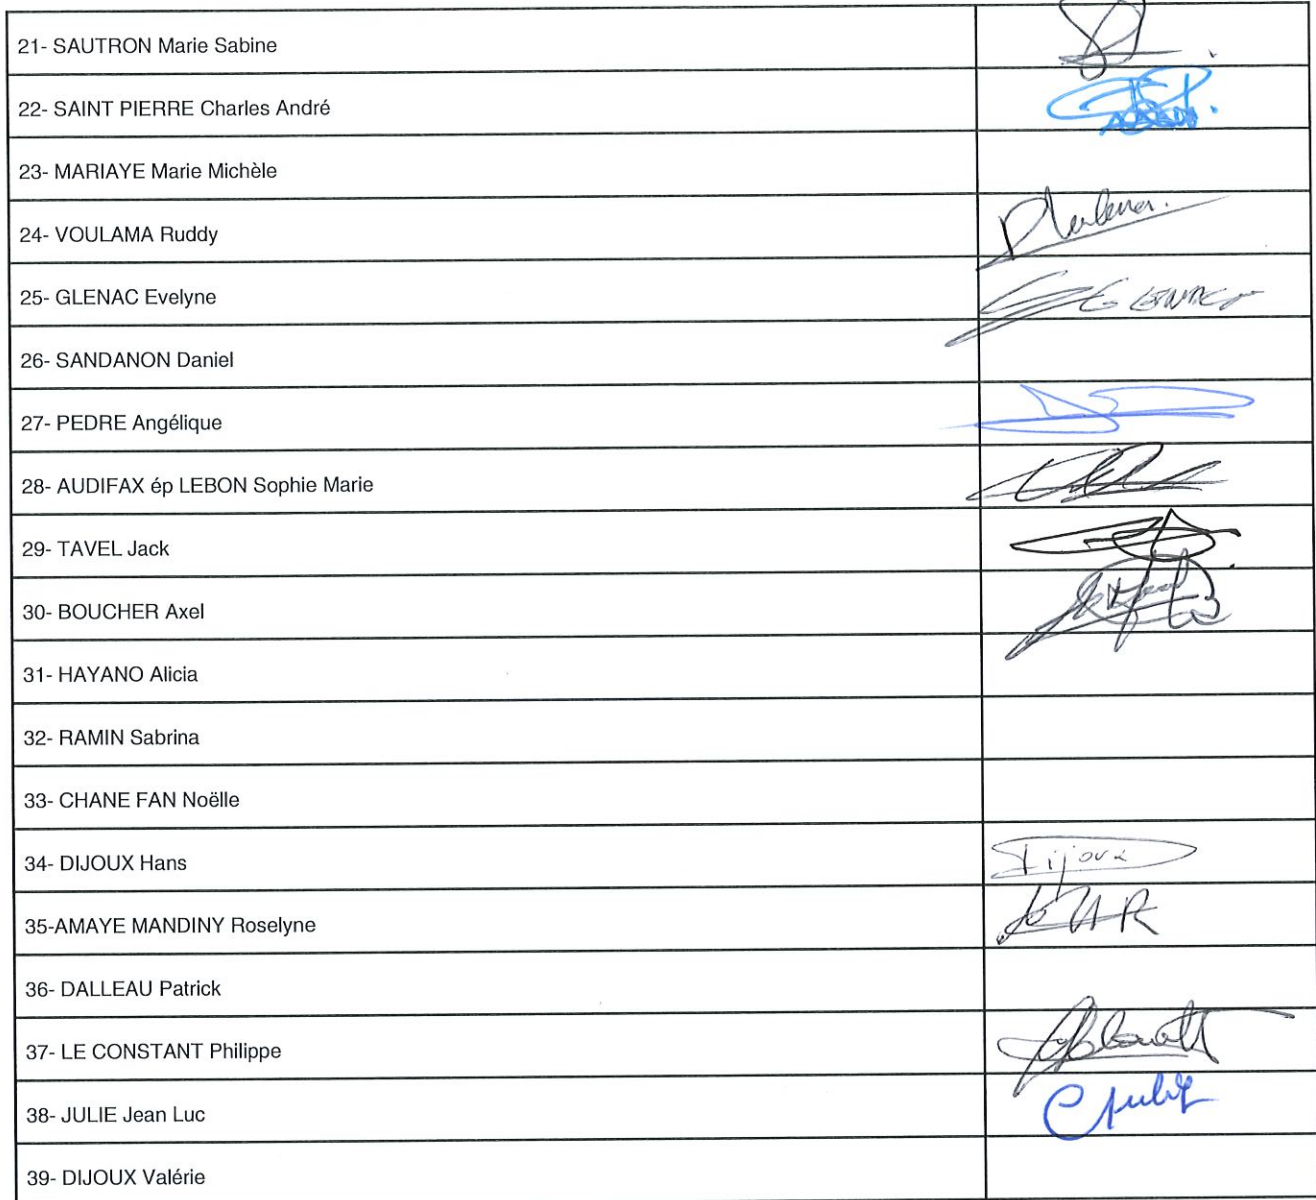 21- SAUTRON Marie Sabine
22- SAINT PIERRE Charles André
23- MARIAYE Marie Michèle
24- VOULAMA Ruddy
25- GLENAC Evelyne
26- SANDANON Daniel
27- PEDRE Angélique
28- AUDIFAX ép LEBON Sophie Marie
29- TAVEL Jack
30- BOUCHER Axel
31- HAYANO Alicia
32- RAMIN Sabrina
33- CHANE FAN Noëlle
34- DIJOUX Hans Dijoux
35-AMAYE MANDINY Roselyne
36- DALLEAU Patrick
37- LE CONSTANT Philippe
38- JULIE Jean Luc
39- DIJOUX Valérie